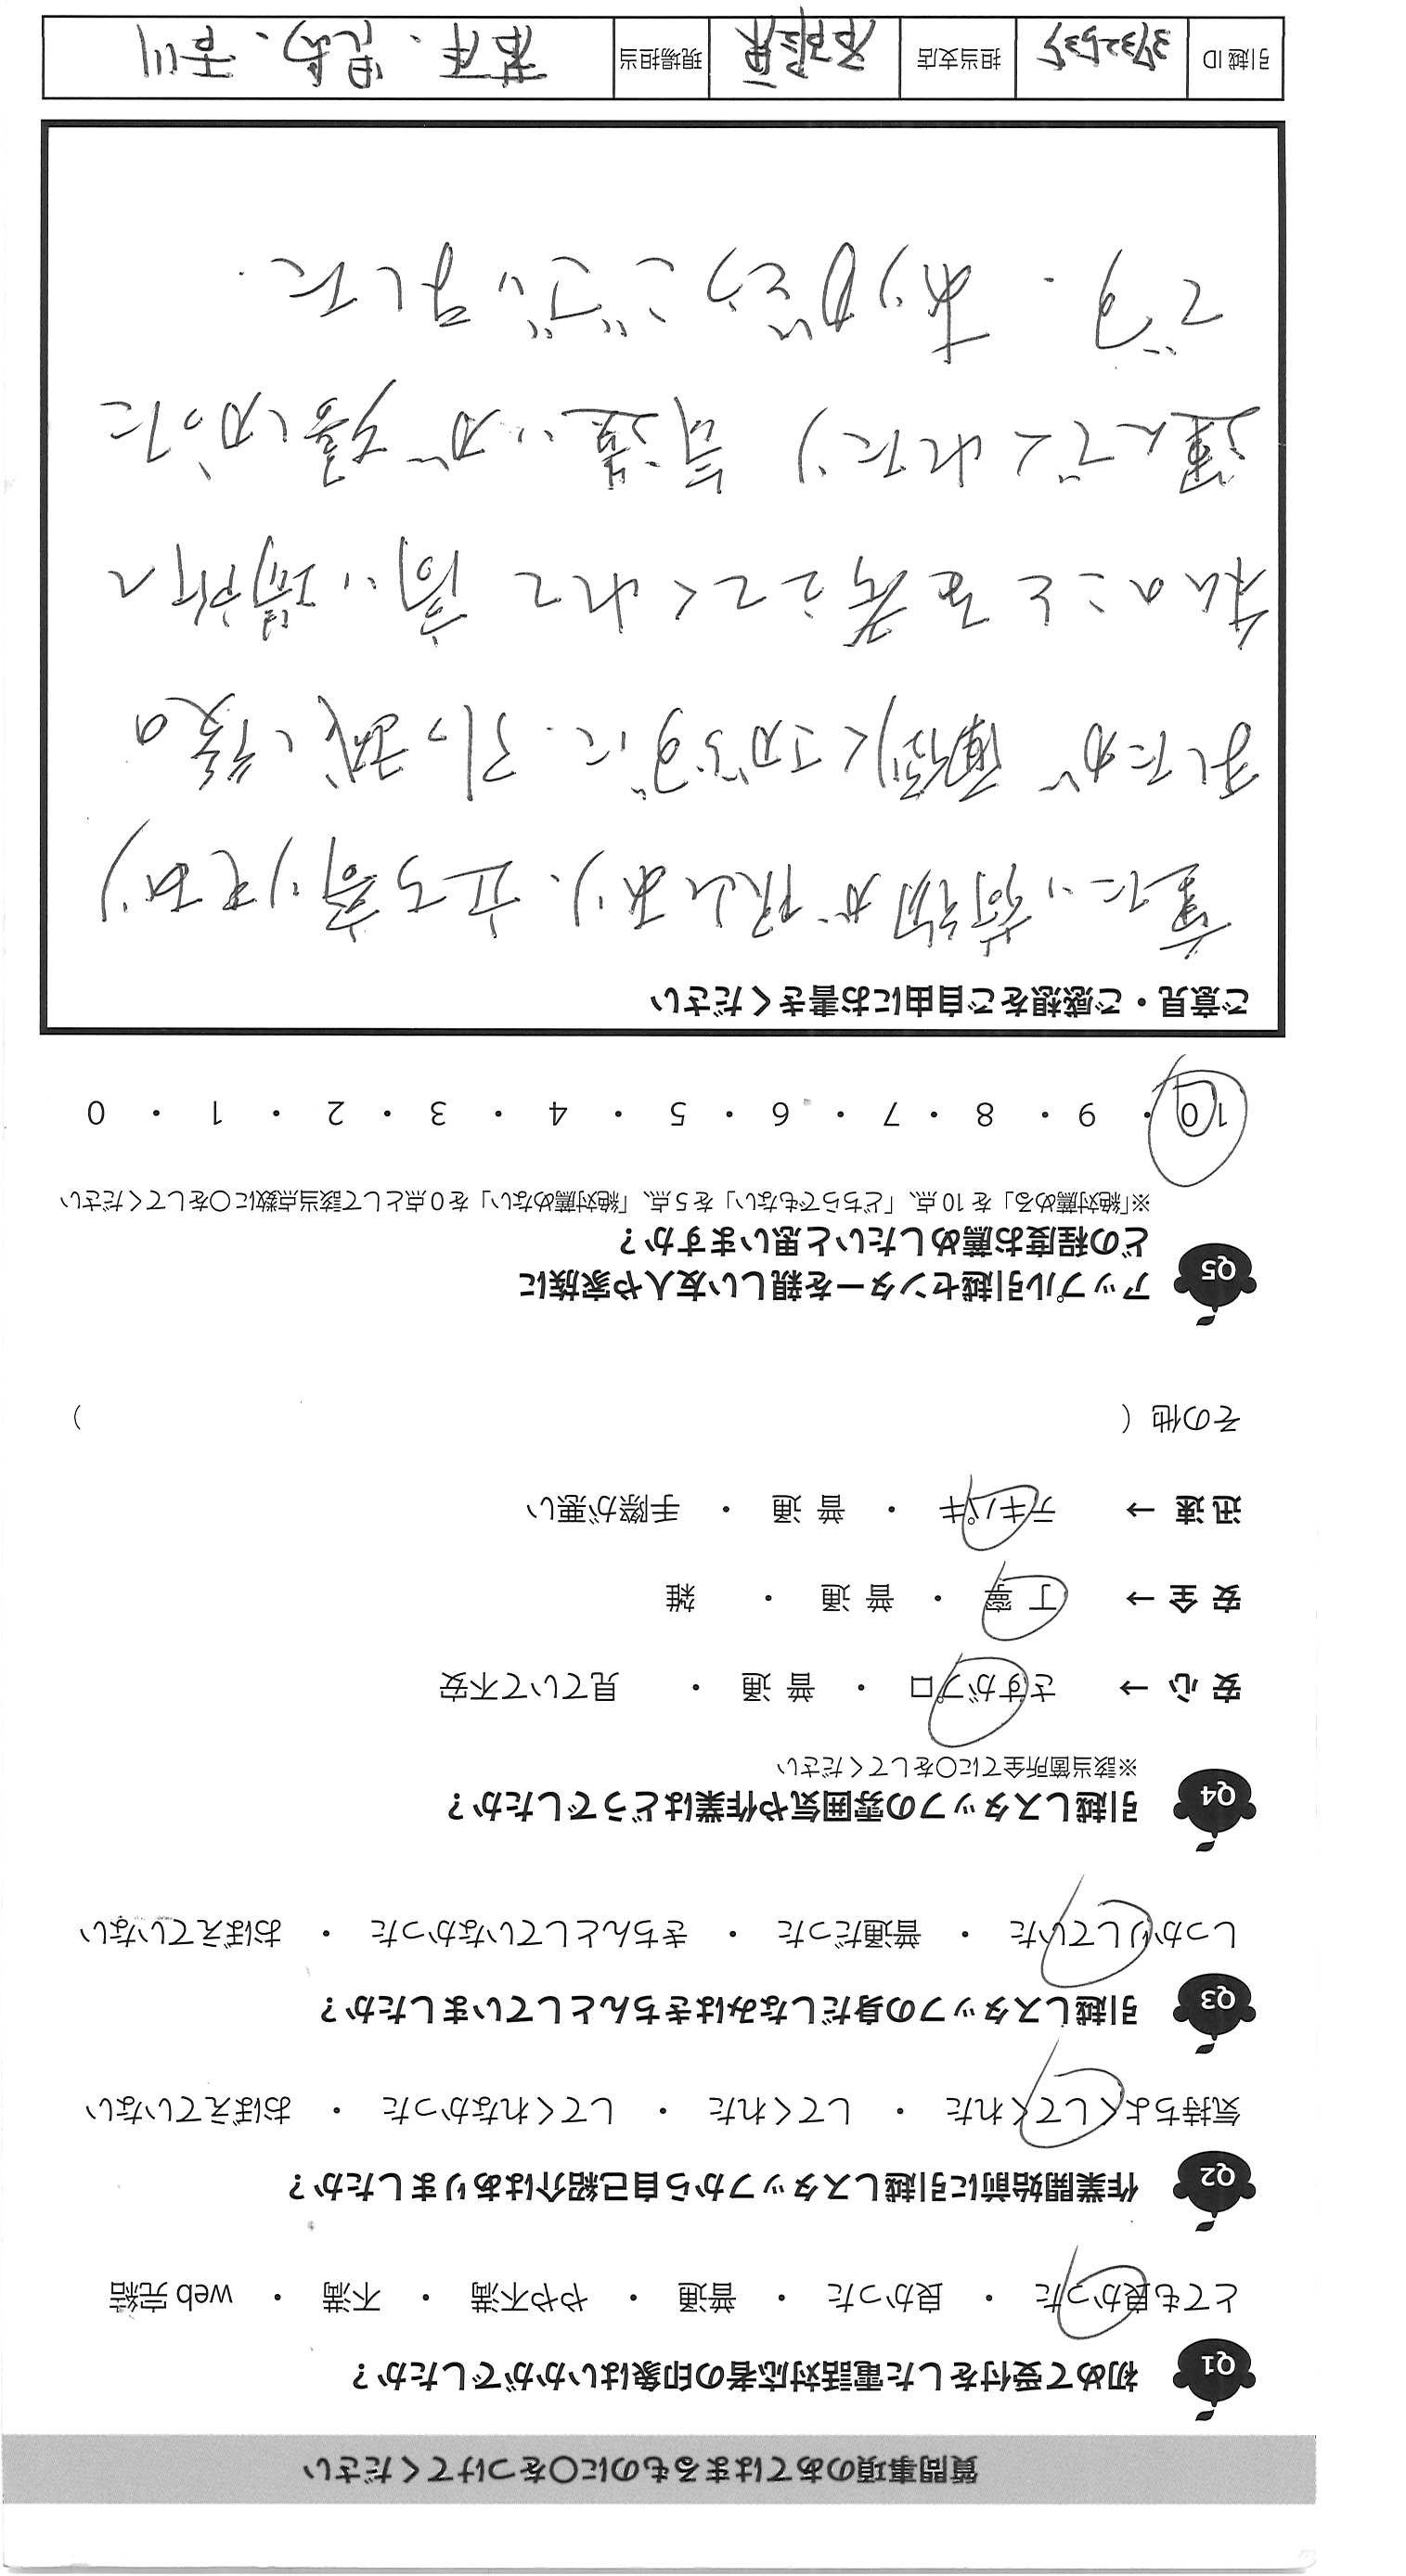 質問事項のあてはまるものに○をつけてください
Q1 初めて受付をした電話対応者の印象はいかがでしたか？
とても良かった ・ 良かった ・ 普通 ・ やや不満 ・ 不満 ・ web 完結
Q2 作業開始前に引越しスタッフから自己紹介はありましたか？
気持ちよくしてくれた ・ してくれた ・ してくれなかった ・ おぼえていない
Q3 引越しスタッフの身だしなみはきちんとしていましたか？
しっかりしていた ・ 普通だった ・ きちんとしていなかった ・ おぼえていない
Q4 引越しスタッフの雰囲気や作業はどうでしたか？
※該当箇所全てに○をしてください
安心 → さすがプロ ・ 普通 ・ 見ていて不安
安全 → 丁寧 ・ 普通 ・ 雑
迅速 → テキパキ ・ 普通 ・ 手際が悪い
その他（ ）
Q5 アップル引越センターを親しい友人や家族に
どの程度お薦めしたいと思いますか？
※「絶対薦める」を 10 点、「どちらでもない」を 5 点、「絶対薦めない」を 0 点として該当点数に○をしてください
10 ・ 9 ・ 8 ・ 7 ・ 6 ・ 5 ・ 4 ・ 3 ・ 2 ・ 1 ・ 0
ご意見・ご感想をご自由にお書きください
重たい荷物が沢山あり、立ち寄りもあり
ましたが 面倒くさがらずに、引っ越し後の
私のことを考えてくれて 高い場所へ
運んでくれたり 気遣いが 嬉しかった
です. ありがとうございました.
引越 ID 3732535 担当支店 現場担当 若本、児島、吉川